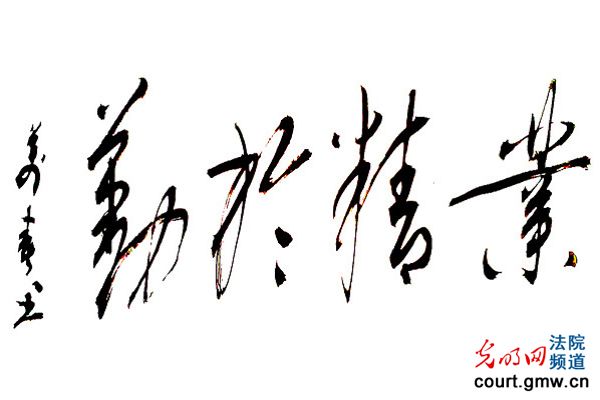 業精於勤
光明网
法院
频道
court.gmw.cn